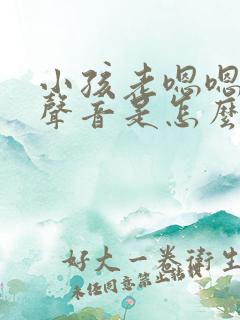 小孩老嗯嗯
聲音是怎麼
好大一卷衛生
未经同意禁止转载